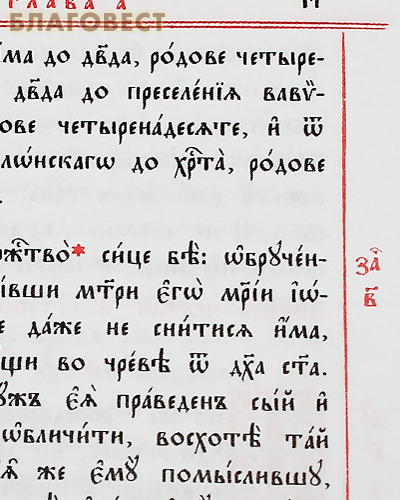 ГЛАВА А҃
БЛАГОВЕСТ
і҆́ма до дв҃да, ро́дове четыре-
дв҃да до преселе́нїѧ вавѷ-
ове четырена́десѧте, и҆ ѿ
лѡ́нскагѡ до хрⷭ҇та̀, ро́дове
ождⷭ҇тво̀* си́це бѣ̀: ѡ҆брꙋче́н-
за҄
і́вши мт҃ри є҆гѡ̀ мр҃і́и і҆ѡ́-
в҃
да́же не сни́тисѧ и҆́ма,
щи во чре́вѣ ѿ дх҃а ст҃а.
ꙋжъ є҆ѧ̀ пра́веденъ сы́й и҆
ѡ҆бличи́ти, восхотѣ̀ та́й
ѧ҆̀ же є҆мꙋ̀ помы́слившꙋ,